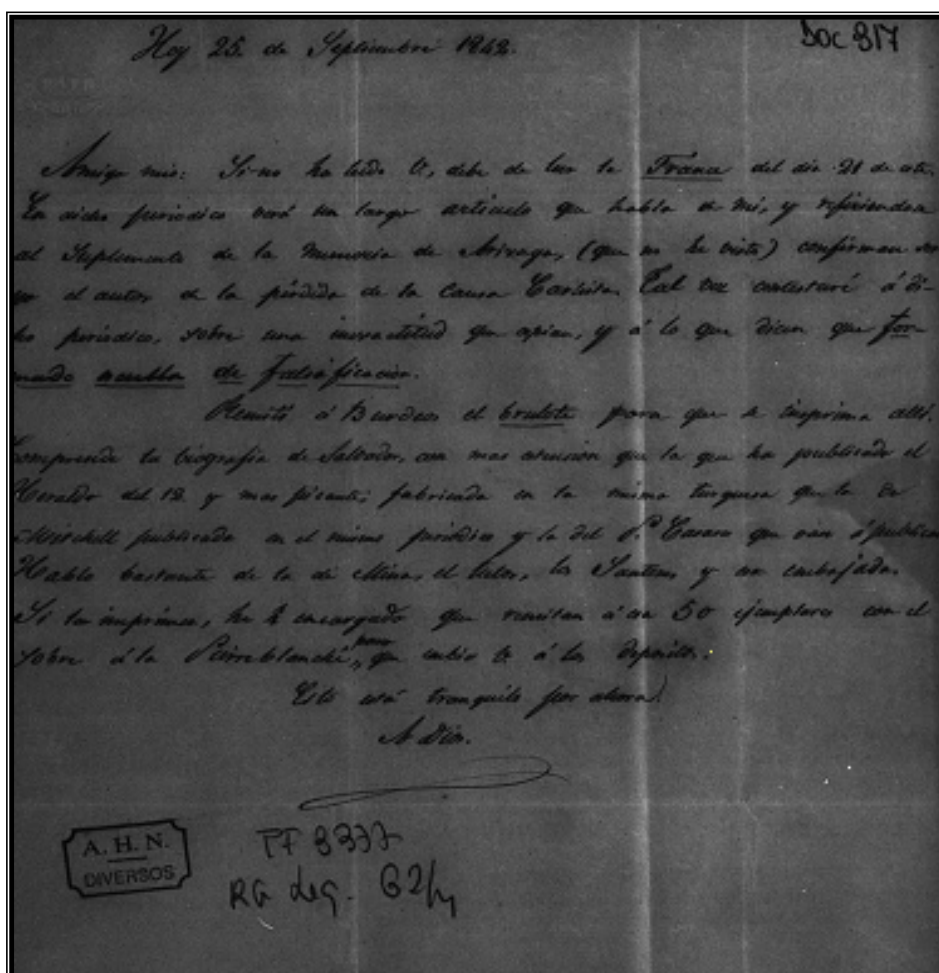 Hoy 25. de Septiembre 1842.
DOC 817
Amigo mio: Si no ha leido V., debe de leer la France del dia 21 de este.
En dicho periodico verá un largo articulo que habla de mi, y refiriendose
al Suplemento de la memoria de Arizaga, (que no he visto) confirman ser
yo el autor de la pérdida de la Causa Carlista. Tal vez contestaré á di-
ho periodico, sobre una inexactitud que copian, y á lo que dicen que for
mando de falsificacion.
Remito á Burdeos el brulote para que se imprima allí.
Comprende la biografia de Salvador, con mas estension que la que ha publicado el
Heraldo del 12 y mas picante; fabricada en la misma turquesa que la de
Mitchell publicada en el mismo periodico y la del P. que van á publicar
Hablo bastante de la de Mina, el los y su embajada.
Si la imprimen, he encargado que remitan á esa 50 ejemplares con el
sobre á la para que V. á los depositos.
Esto está tranquilo por ahora.
A Dios.
A. H. N.
DIVERSOS
PF 8377
RG Leg.